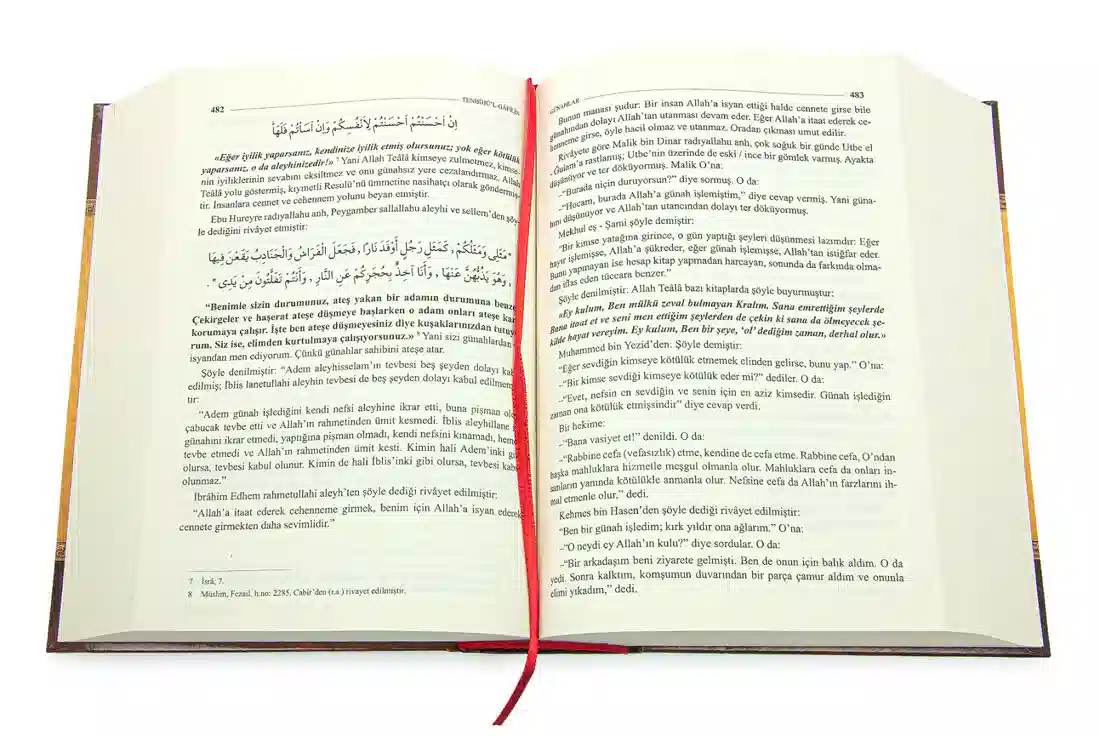 482
TENBÎHÜ'L-GÂFİLÎN
اِنْ اَحْسَنْتُمْ اَحْسَنْتُمْ لِاَنْفُسِكُمْ وَاِنْ اَسَأْتُمْ فَلَهَا
«Eğer iyilik yaparsanız, kendinize iyilik etmiş olursunuz; yok eğer kötülük
yaparsanız, o da aleyhinizedir!» 7 Yani Allah Teâlâ kimseye zulmetmez, kimse-
nin iyiliklerinin sevabını eksiltmez ve onu günahsız yere cezalandırmaz. Allah
Teâlâ yolu göstermiş, kıymetli Resulü'nü ümmetine nasihatçı olarak göndermiş-
tir. İnsanlara cennet ve cehennem yolunu beyan etmiştir.
Ebu Hureyre radıyallahu anh, Peygamber sallallahu aleyhi ve sellem'den şöy-
le dediğini rivâyet etmiştir:
"مَثَلِى وَمَثَلُكُمْ , كَمَثَلِ رَجُلٍ أَوْقَدَ نَارًا , فَجَعَلَ الْفَرَاشُ وَالْجَنَادِبُ يَقَعْنَ فِيهَا
, وَهُوَ يَذُبُّهُنَّ عَنْهَا , وَأَنَا آخِذٌ بِحُجَزِكُمْ عَنِ النَّارِ , وَأَنْتُمْ تَفَلَّتُونَ مِنْ يَدِى" .
"Benimle sizin durumunuz, ateş yakan bir adamın durumuna benze
Çekirgeler ve haşerat ateşe düşmeye başlarken o adam onları ateşe kar
korumaya çalışır. İşte ben ateşe düşmeyesiniz diye kuşaklarınızdan tutuy
rum. Siz ise, elimden kurtulmaya çalışıyorsunuz.» 8 Yani sizi günahlardan
isyandan men ediyorum. Çünkü günahlar sahibini ateşe atar.
Şöyle denilmiştir: "Adem aleyhisselam'ın tevbesi beş şeyden dolayı kab
edilmiş; İblis lanetullahi aleyhin tevbesi de beş şeyden dolayı kabul edilmem
tir:
"Adem günah işlediğini kendi nefsi aleyhine ikrar etti, buna pişman old
çabucak tevbe etti ve Allah'ın rahmetinden ümit kesmedi. İblis aleyhillane
günahını ikrar etmedi, yaptığına pişman olmadı, kendi nefsini kınamadı, heme
tevbe etmedi ve Allah'ın rahmetinden ümit kesti. Kimin hali Adem'inki gi
olursa, tevbesi kabul olunur. Kimin de hali İblis'inki gibi olursa, tevbesi kabu
olunmaz."
İbrâhim Edhem rahmetullahi aleyh'ten şöyle dediği rivâyet edilmiştir:
"Allah'a itaat ederek cehenneme girmek, benim için Allah'a isyan ederek
cennete girmekten daha sevimlidir."
7 İsrâ, 7.
8 Müslim, Fezail, h.no: 2285. Cabir'den (r.a.) rivayet edilmiştir.
GÜNAHLAR
483
Bunun manası şudur: Bir insan Allah'a isyan ettiği halde cennete girse bile
günahından dolayı Allah'tan utanması devam eder. Eğer Allah'a itaat ederek ce-
henneme girse, öyle hacil olmaz ve utanmaz. Oradan çıkması umut edilir.
Rivâyete göre Malik bin Dinar radıyallahu anh, çok soğuk bir günde Utbe el
- Gulam'a rastlamış; Utbe'nin üzerinde de eski / ince bir gömlek varmış. Ayakta
düşünüyor ve ter döküyormuş. Malik O'na:
-"Burada niçin duruyorsun?" diye sormuş. O da:
-"Hocam, burada Allah'a günah işlemiştim," diye cevap vermiş. Yani güna-
hını düşünüyor ve Allah'tan utancından dolayı ter döküyormuş.
Mekhul eş - Şami şöyle demiştir:
"Bir kimse yatağına girince, o gün yaptığı şeyleri düşünmesi lazımdır: Eğer
hayır işlemişse, Allah'a şükreder, eğer günah işlemişse, Allah'tan istiğfar eder.
Bunu yapmayan ise hesap kitap yapmadan harcayan, sonunda da farkında olma-
dan iflas eden tüccara benzer."
Şöyle denilmiştir: Allah Teâlâ bazı kitaplarda şöyle buyurmuştur:
«Ey kulum, Ben mülkü zeval bulmayan Kralım. Sana emrettiğim şeylerde
Bana itaat et ve seni men ettiğim şeylerden de çekin ki sana da ölmeyecek şe-
kilde hayat vereyim. Ey kulum, Ben bir şeye, 'ol' dediğim zaman, derhal olur.»
Muhammed bin Yezid'den: Şöyle demiştir:
"Eğer sevdiğin kimseye kötülük etmemek elinden gelirse, bunu yap." O'na:
-"Bir kimse sevdiği kimseye kötülük eder mi?" dediler. O da:
-"Evet, nefsin en sevdiğin ve senin için en aziz kimsedir. Günah işlediğin
zaman ona kötülük etmişsindir" diye cevap verdi.
Bir hekime:
-"Bana vasiyet et!" denildi. O da:
-"Rabbine cefa (vefasızlık) etme, kendine de cefa etme. Rabbine cefa, O'ndan
başka mahluklara hizmetle meşgul olmanla olur. Mahluklara cefa da onları in-
sanların yanında kötülükle anmanla olur. Nefsine cefa da Allah'ın farzlarını ih-
mal etmenle olur," dedi.
Kehmes bin Hasen'den şöyle dediği rivâyet edilmiştir:
"Ben bir günah işledim; kırk yıldır ona ağlarım." O'na:
-"O neydi ey Allah'ın kulu?" diye sordular. O da:
-"Bir arkadaşım beni ziyarete gelmişti. Ben de onun için balık aldım. O da
yedi. Sonra kalktım, komşumun duvarından bir parça çamur aldım ve onunla
elimi yıkadım," dedi.